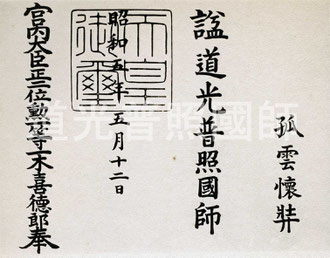 孤雲懷弉
諡道光普照國師
昭和五年五月十二日
天皇御璽
宮内大臣正二位勲一等一木喜德郎奉
道光普照國師